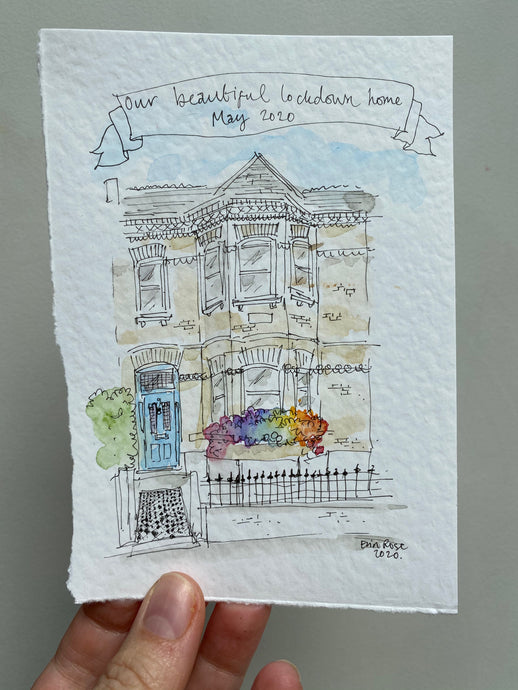 Our beautiful lockdown home
May 2020
Erin Rose
2020.